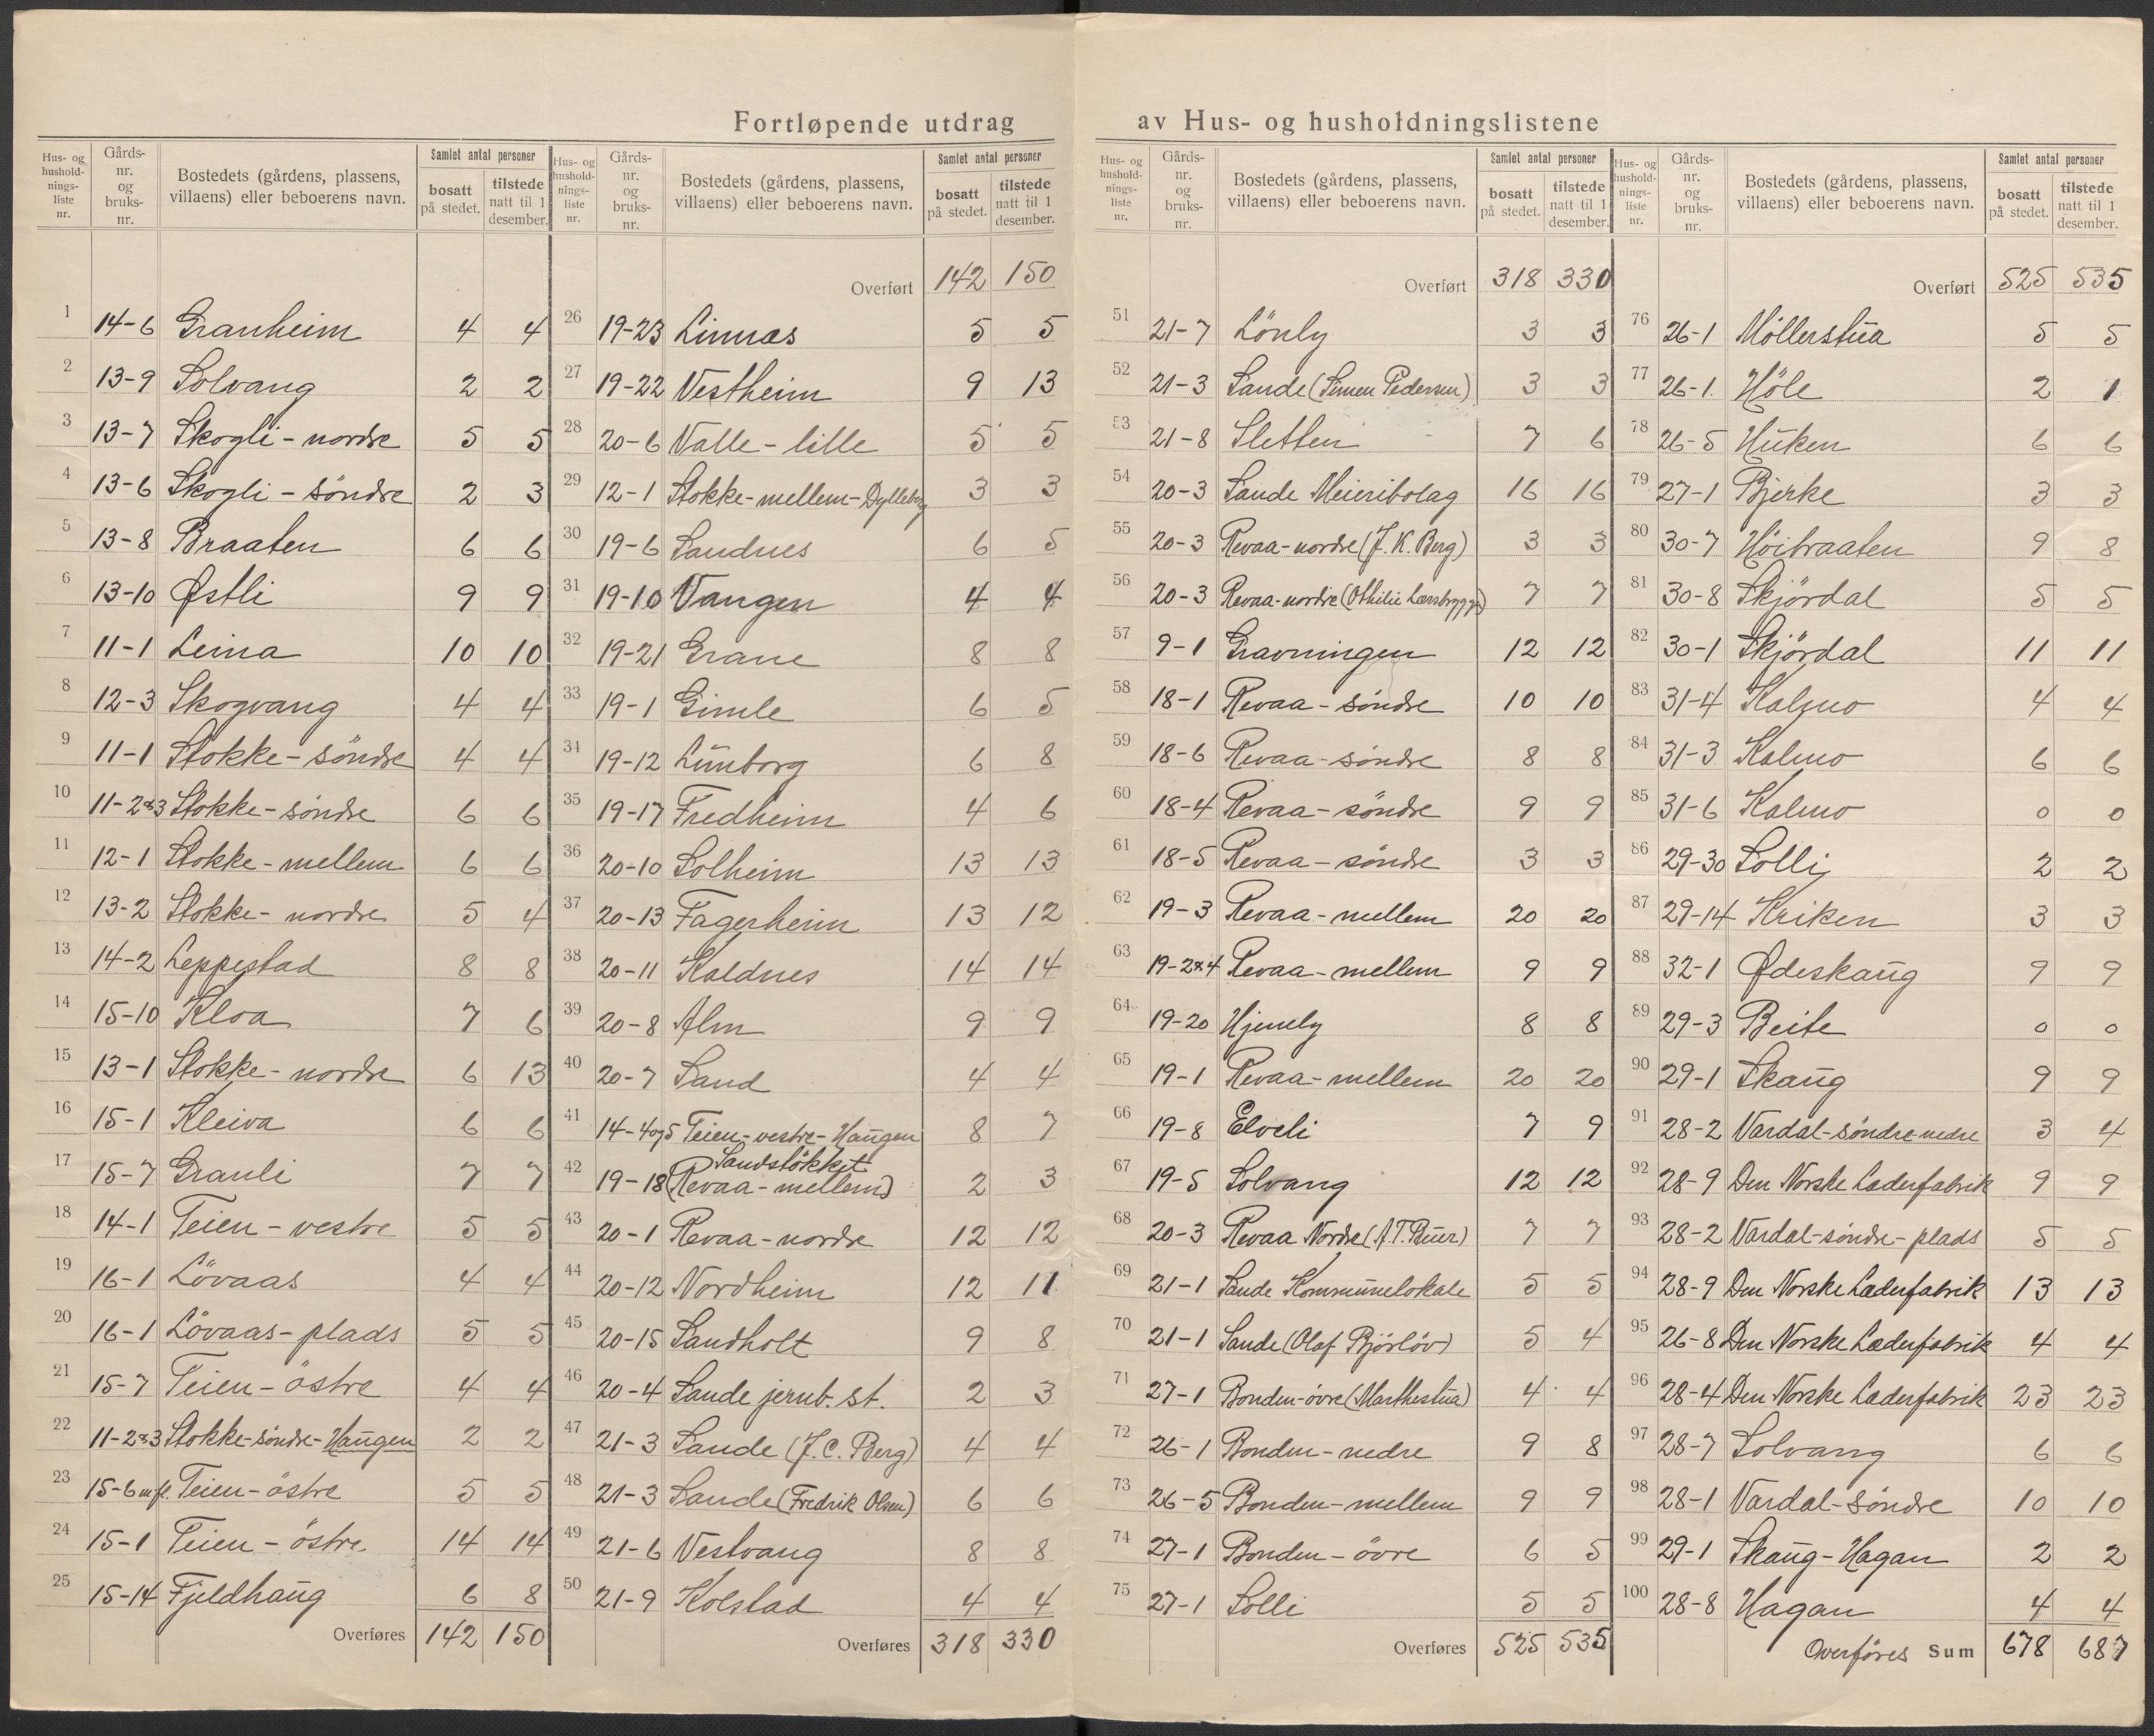 Fortløpende utdrag av Hus- og husholdningslistene
Hus- og hushold-nings-liste nr. Gårds-nr. og bruks-nr. Bostedets (gårdens, plassens, villaens) eller beboerens navn. Samlet antal personer bosatt på stedet. tilstede natt til 1 desember.
1 14-6 Granheim 4 4
2 13-9 Solvang 2 2
3 13-7 Skogli - nordre 5 5
4 13-6 Skogli - söndre 2 3
5 13-8 Braaten 6 6
6 13-10 Østli 9 9
7 11-1 Leina 10 10
8 12-3 Skogvang 4 4
9 11-1 Stokke - söndre 4 4
10 11-2&3 Stokke - söndre 6 6
11 12-1 Stokke - mellem 6 6
12 13-2 Stokke - nordre 5 4
13 14-2 Leppestad 8 8
14 15-10 Kloa 7 6
15 13-1 Stokke - nordre 6 13
16 15-1 Kleiva 6 6
17 15-7 Granli 7 7
18 14-1 Teien - vestre 5 5
19 16-1 Lövaas 4 4
20 16-1 Lövaas - plads 5 5
21 15-7 Teien - östre 4 4
22 11-2&3 Stokke-söndre-Haugen 2 2
23 15-6 mfl. Teien - östre 5 5
24 15-1 Teien - östre 14 14
25 15-14 Fjeldhaug 6 8
Overføres 142 150
Hus- og hushold-nings-liste nr. Gårds-nr. og bruks-nr. Bostedets (gårdens, plassens, villaens) eller beboerens navn. Samlet antal personer bosatt på stedet. tilstede natt til 1 desember.
Overført 142 150
26 19-23 Linnæs 5 5
27 19-22 Vestheim 9 13
28 20-6 Valle - lille 5 5
29 12-1 Stokke-mellem- 3 3
30 19-6 Sandnes 6 5
31 19-10 Vangen 4 4
32 19-21 Grane 8 8
33 19-1 Gimle 6 5
34 19-12 Lunborg 6 8
35 19-17 Fredheim 4 6
36 20-10 Solheim 13 13
37 20-13 Fagerheim 13 12
38 20-11 Kaldnes 14 14
39 20-8 Alm 9 9
40 20-7 Sand 4 4
41 14-4og5 Teien-vestre-Haugen 8 7
42 19-18 Sandstökket (Revaa - mellem) 2 3
43 20-1 Revaa - nordre 12 12
44 20-12 Nordheim 12 11
45 20-15 Sandholt 9 8
46 20-4 Sande jernb. st. 2 3
47 21-3 Sande (J. C. Berg) 4 4
48 21-3 Sande (Fredrik Olsen) 6 6
49 21-6 Vestvang 8 8
50 21-9 Kolstad 4 4
Overføres 318 330
Hus- og hushold-nings-liste nr. Gårds-nr. og bruks-nr. Bostedets (gårdens, plassens, villaens) eller beboerens navn. Samlet antal personer bosatt på stedet. tilstede natt til 1 desember.
Overført 318 330
51 21-7 Lönly 3 3
52 21-3 Sande (Simen Pedersen) 3 3
53 21-8 Sletten 7 6
54 20-3 Sande Meieribolag 16 16
55 20-3 Revaa-nordre (J. K. Berg) 3 3
56 20-3 Revaa-nordre (Othilie 7 7
57 9-1 Gravningen 12 12
58 18-1 Revaa - söndre 10 10
59 18-6 Revaa - söndre 8 8
60 18-4 Revaa - söndre 9 9
61 18-5 Revaa - söndre 3 3
62 19-3 Revaa - mellem 20 20
63 19-2&4 Revaa - mellem 9 9
64 19-20 Hjemly 8 8
65 19-1 Revaa - mellem 20 20
66 19-8 Elveli 7 9
67 19-5 Solvang 12 12
68 20-3 Revaa Nordre (A. T. Buer) 7 7
69 21-1 Sande Kommunelokale 5 5
70 21-1 Sande (Olaf Björlöv) 5 4
71 27-1 Bonden-övre (Marthestua) 4 4
72 26-1 Bonden - nedre 9 8
73 26-5 Bonden - mellem 9 9
74 27-1 Bonden - övre 6 5
75 27-1 Solli 5 5
Overføres 525 535
Hus- og hushold-nings-liste nr. Gårds-nr. og bruks-nr. Bostedets (gårdens, plassens, villaens) eller beboerens navn. Samlet antal personer bosatt på stedet. tilstede natt til 1 desember.
Overført 525 535
76 26-1 Möllerstua 5 5
77 26-1. Höle 2 1
78 26-5 Huken 6 6
79 27-1 Bjerke 3 3
80 30-7 Höibraaten 9 8
81 30-8 Skjördal 5 5
82 30-1 Skjördal 11 11
83 31-4 Kalmo 4 4
84 31-3 Kalmo 6 6
85 31-6 Kalmo 0 0
86 29-30 Solli 2 2
87 29-14 Kriken 3 3
88 32-1 Ødeskaug 9 9
89 29-3 Beite 0 0
90 29-1 Skaug 9 9
91 28-2 Vardal-söndre-nedre 3 4
92 28-9 Den Norske Læderfabrik 9 9
93 28-2 Vardal-söndre-plads 5 5
94 28-9 Den Norske Læderfabrik 13 13
95 26-8 Den Norske Læderfabrik 4 4
96 28-4 Den Norske Læderfabrik 23 23
97 28-7 Solvang 6 6
98 28-1 Vardal-söndre 10 10
99 29-1 Skaug-Hagan 2 2
100 28-8 Hagan 4 4
Overföres Sum 678 687